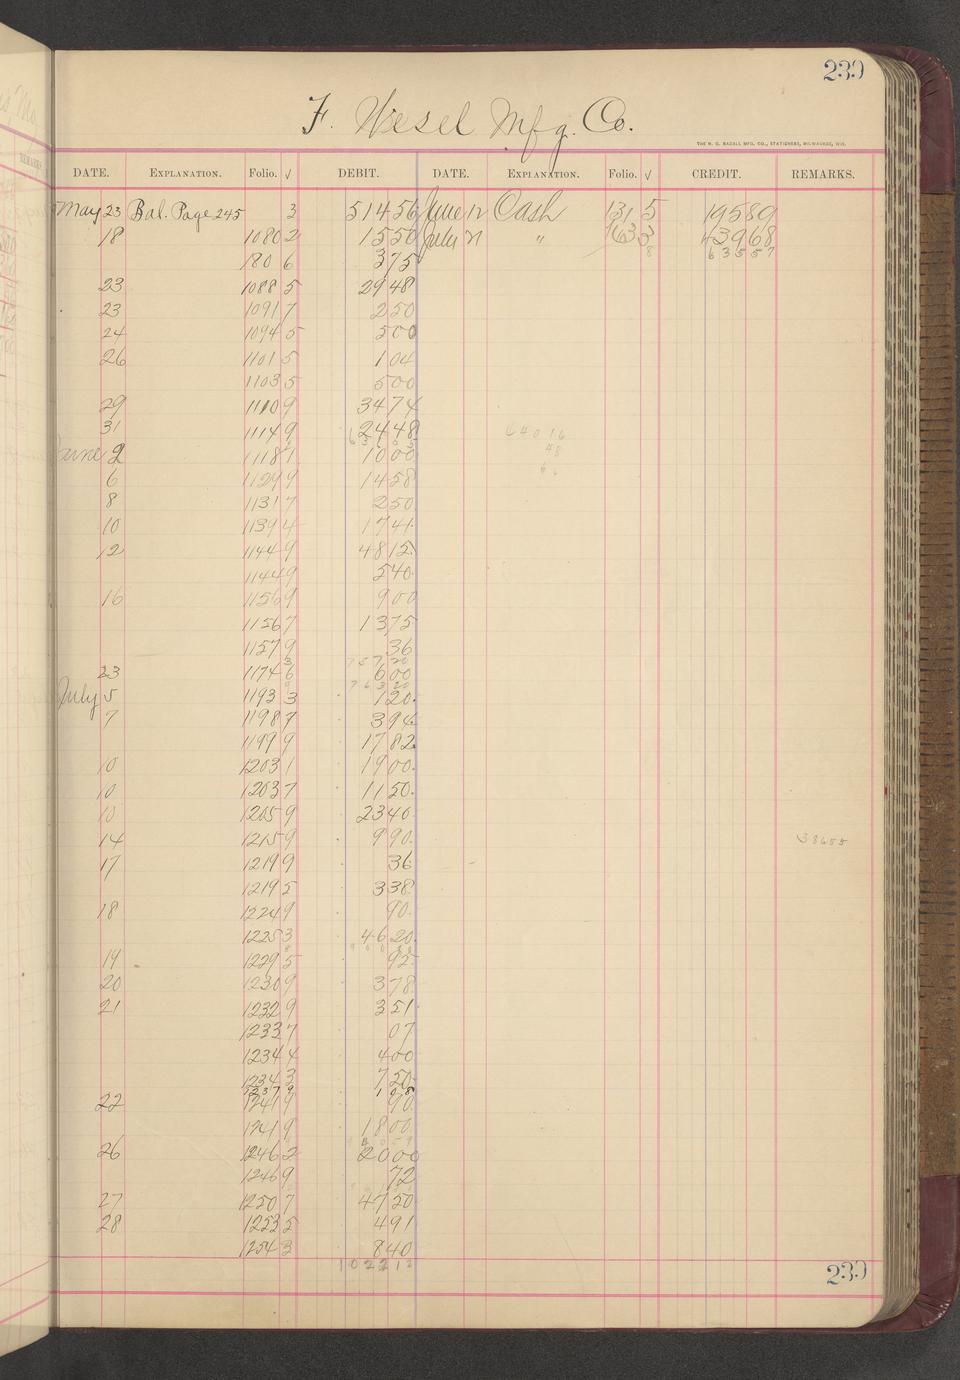 239
F. Wesel Mfg. Co.
THE H. G. RAZALL MFG. CO., STATIONERS, MILWAUKEE, WIS.
DATE. EXPLANATION. Folio. √ DEBIT. DATE. EXPLANATION. Folio. √ CREDIT. REMARKS.
May 23 Bal. Page 245 3 51456 June 12 Cash 131 5 19589
18 1080 2 1550 July 21 " 163 3 43968
180 6 375 8 63557
23 1088 5 2948
23 1091 7 250
24 1094 5 500
26 1101 5 104
1103 5 500
29 1110 9 3474
31 1114 9 2448 64016
48
June 2 1118 1 1000
66
6 1129 9 1458
8 1131 7 250
10 1139 4 1741
12 1144 9 4815
1144 9 540
16 1156 9 900
1156 7 1375
1157 9 36
75720
23 1174 6 600
76320
July 5 1193 3 120
7 1198 7 394
1199 9 1782
10 1203 1 1900
10 1203 7 1150
10 1205 9 2340
14 1215 9 990 38655
17 1219 9 36
1219 5 338
18 1224 9 90
1225 3 4620
19 1229 5 92
20 1230 9 378
21 1232 9 351
1233 7 07
1234 4 400
1234 3 750
1237 9 108
22 1241 9 90
1241 9 1800
26 1246 2 2000
1246 9 72
27 1250 7 4750
28 1253 5 491
1254 3 840
102212
239